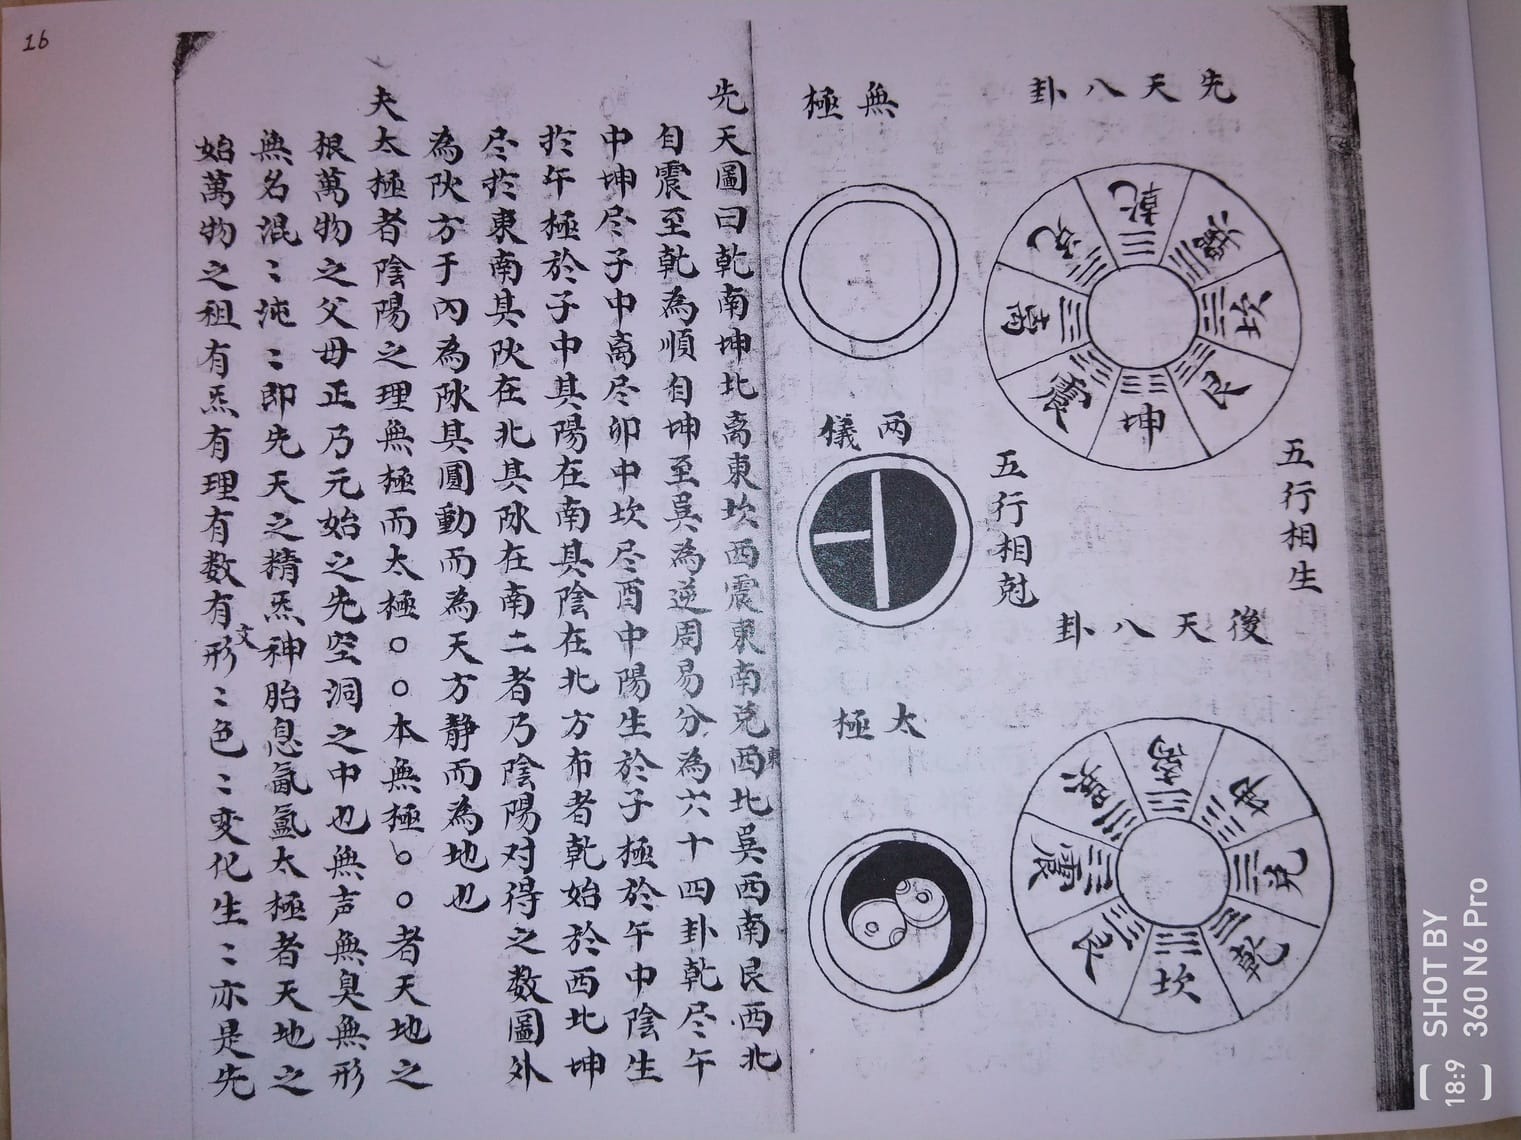 16
先天八卦
乾
巽
坎
艮
坤
震
离
兑
五行相生
五行相尅
後天八卦
离
坤
兑
乾
坎
艮
震
巽
無極
兩儀
太極
先天圖曰乾南坤北离東坎西震東南兑西北巽西南艮西北
東
自震至乾為順自坤至巽為逆周易分為六十四卦乾尽午
中坤尽子中离尽卯中坎尽酉中陽生於子極於午中陰生
於午極於子中其陽在南其陰在北方布者乾始於西北坤
尽於東南其阦在北其阥在南二者乃陰陽对得之数圖外
為阦方于内為阥其圓動而為天方静而為地也
夫太極者陰陽之理無極而太極○○本無極○○者天地之
根萬物之父母正乃元始之先空洞之中也無声無臭無形
無名混〻沌〻即先天之精炁神胎息氤氳太極者天地之
始萬物之祖有炁有理有数有形〻色〻変化生〻亦是先
文
SHOT BY
360 N6 Pro
18:9